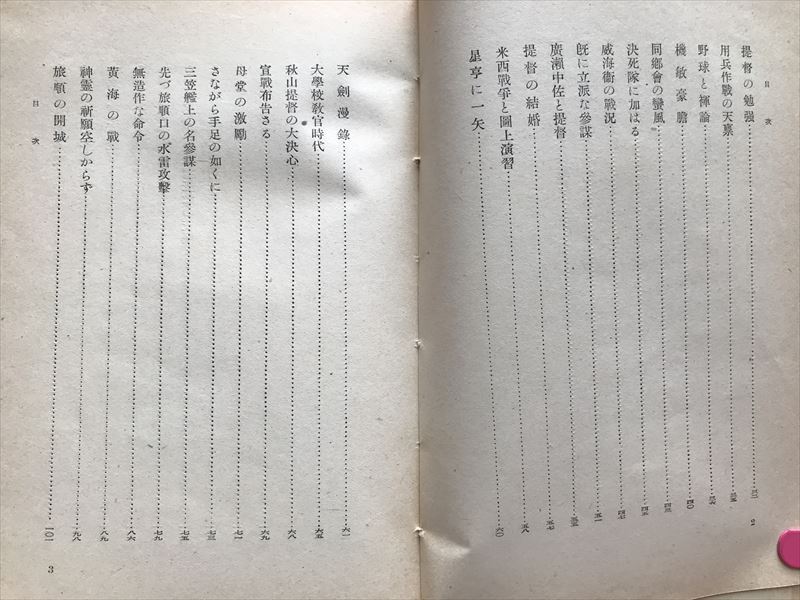 目次
提督の勉強
用兵作戰の天禀
野球と褌論
機敏豪膽
同鄕會の蠻風
決死隊に加はる
威海衞の戰況
旣に立派な參謀
廣瀨中佐と提督
提督の結婚
米西戰爭と圖上演習
星亨に一矢
四〇
四三
四五
四七
五一
五七
五八
六〇
2
天劍漫錄 六一
大學校敎官時代 六五
秋山提督の大決心 六八
宣戰布吿さる 六九
母堂の激勵 七一
さながら手足の如くに 七三
三笠艦上の名參謀 七五
先づ旅順口の水雷攻擊 七九
無造作な命令 八六
黃海の戰 八九
神靈の祈願空しからず 九八
旅順の開城 一〇一
目次
3